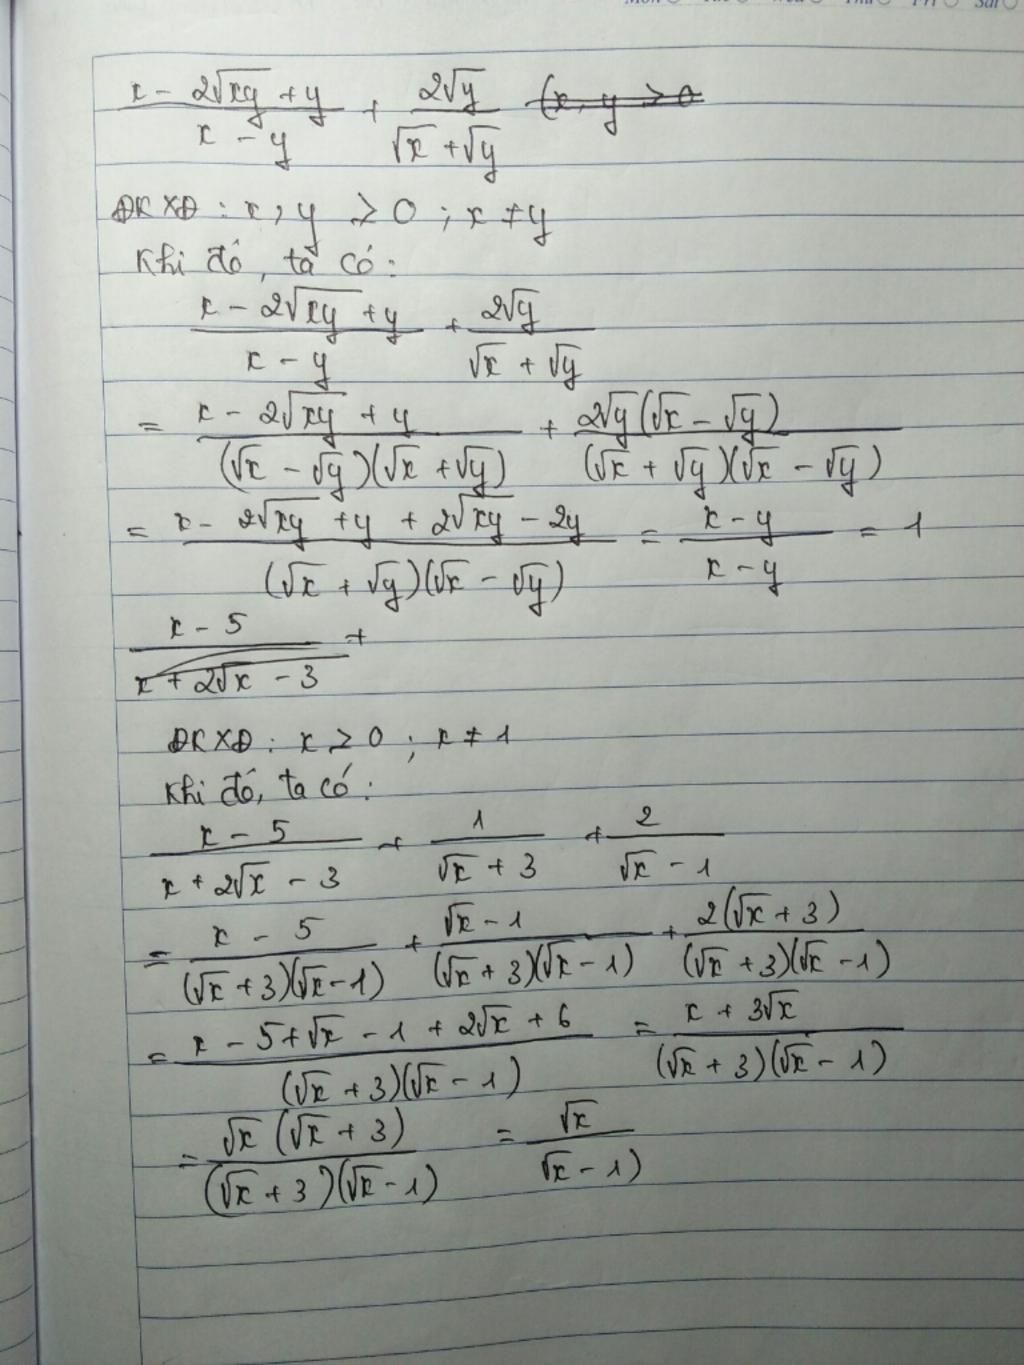 Mon Tue Wed Thu Fri Sat
x - 2√xy + y / x - y + 2√y / √x + √y (x, y > 0
ĐKXĐ : x, y ≥ 0 ; x ≠ y
Khi đó, ta có :
x - 2√xy + y / x - y + 2√y / √x + √y
= x - 2√xy + y / (√x - √y)(√x + √y) + 2√y(√x - √y) / (√x + √y)(√x - √y)
= x - 2√xy + y + 2√xy - 2y / (√x + √y)(√x - √y) = x - y / x - y = 1
x - 5 / x + 2√x - 3 +
ĐKXĐ : x ≥ 0 ; x ≠ 1
Khi đó, ta có :
x - 5 / x + 2√x - 3 + 1 / √x + 3 + 2 / √x - 1
= x - 5 / (√x + 3)(√x - 1) + √x - 1 / (√x + 3)(√x - 1) + 2(√x + 3) / (√x + 3)(√x - 1)
= x - 5 + √x - 1 + 2√x + 6 / (√x + 3)(√x - 1) = x + 3√x / (√x + 3)(√x - 1)
= √x (√x + 3) / (√x + 3)(√x - 1) = √x / √x - 1)